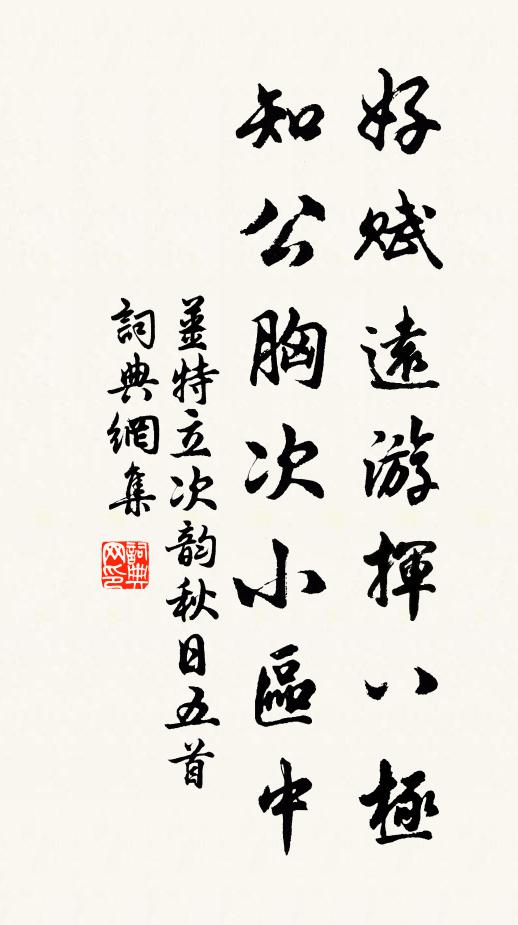 好赋遠游揮八極
知公胸次小區中
姜特立次韵秋日五首
詞典網集
詞典網印